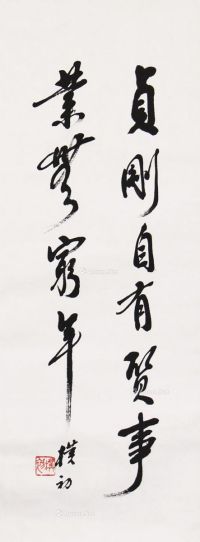 貞剛自有質事
業無窮年
樸初